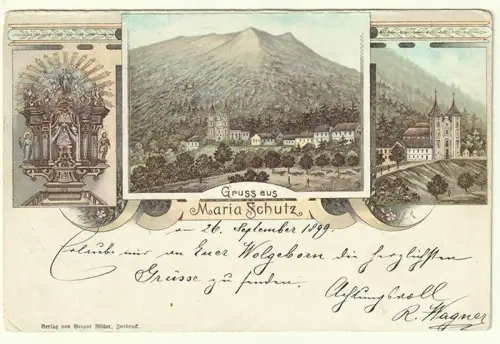 Gruss aus
Maria Schutz
am 26. September 1899.
Erlaube mir an Euer Wolgeborn die herzlichsten
Grüsse zu senden.
Achtungsvoll
R. Wagner
Verlag von Gregor Fischer, Innsbruck.